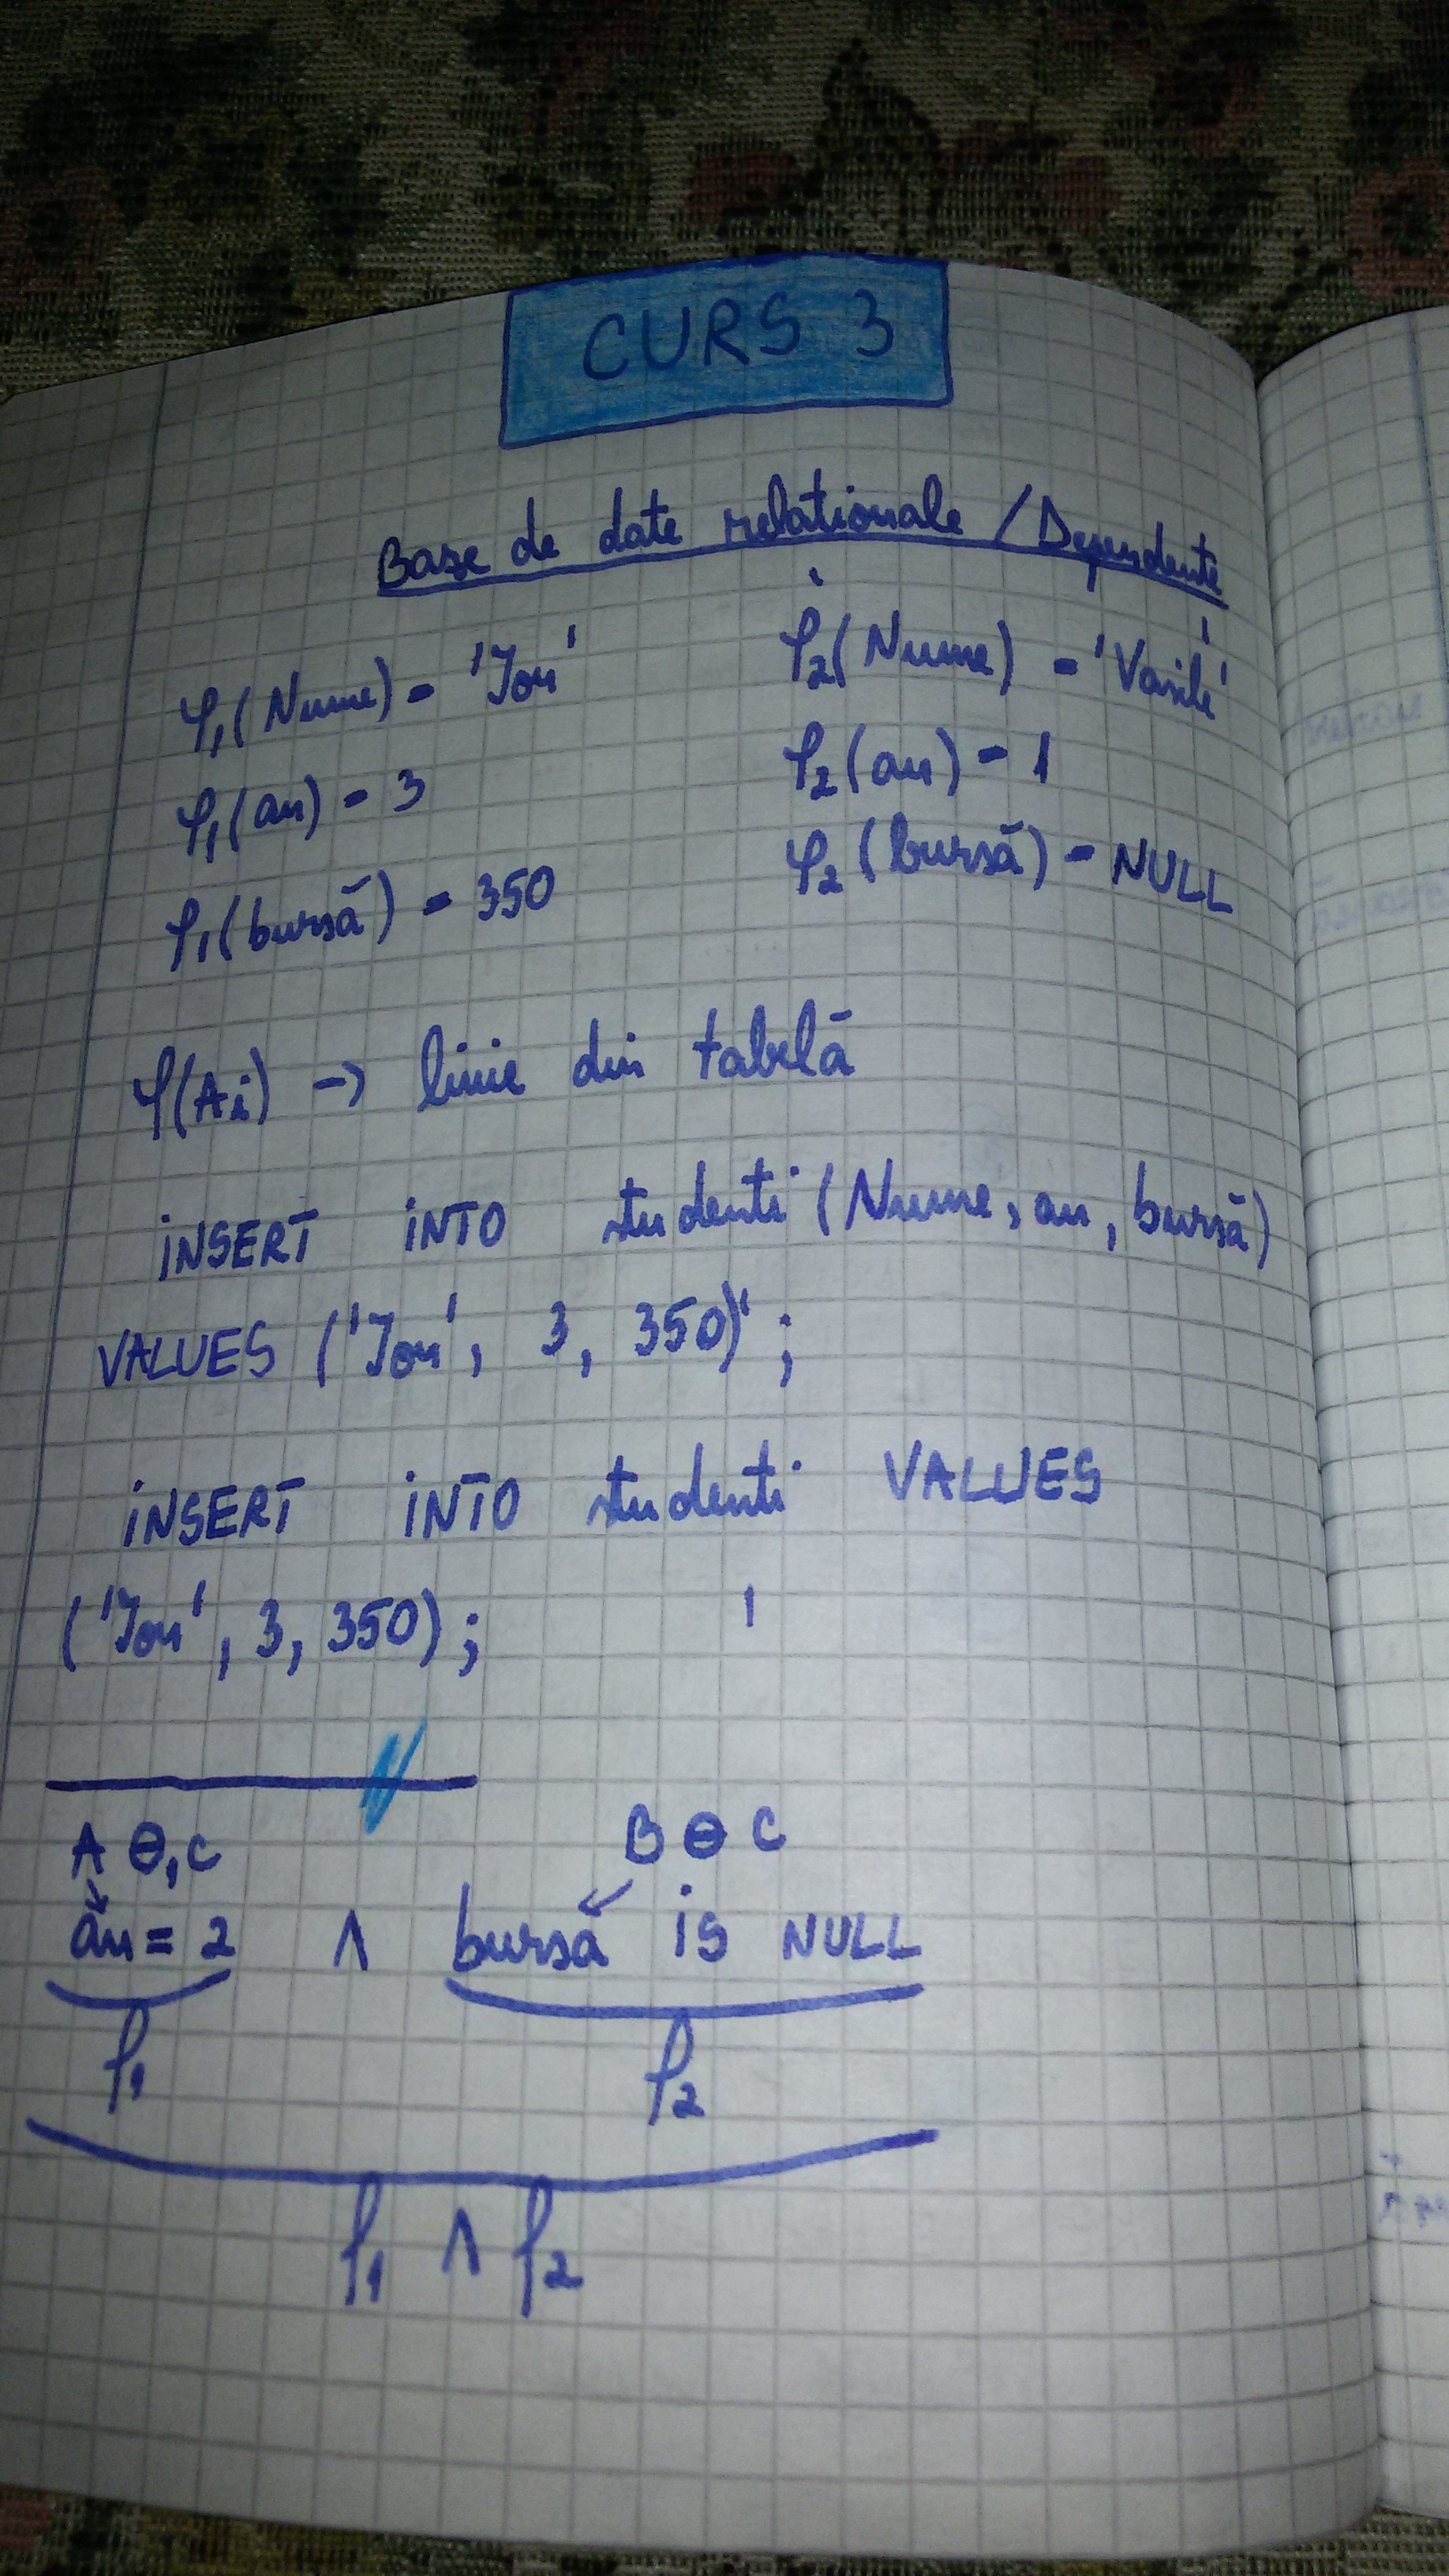 CURS 3
Baze de date relaționale / Dependențe
φ₁(Nume) = 'Ion'
φ₂(Nume) = 'Vasile'
φ₁(an) = 3
φ₂(an) = 1
φ₁(bursă) = 350
φ₂(bursă) = NULL
φ(Ai) → linie din tabelă
INSERT INTO studenti (Nume, an, bursă)
VALUES ('Ion', 3, 350)';
INSERT INTO studenti VALUES
('Ion', 3, 350);
A Θ₁ c
B Θ c
an = 2 ∧ bursă is NULL
f₁
f₂
f₁ ∧ f₂